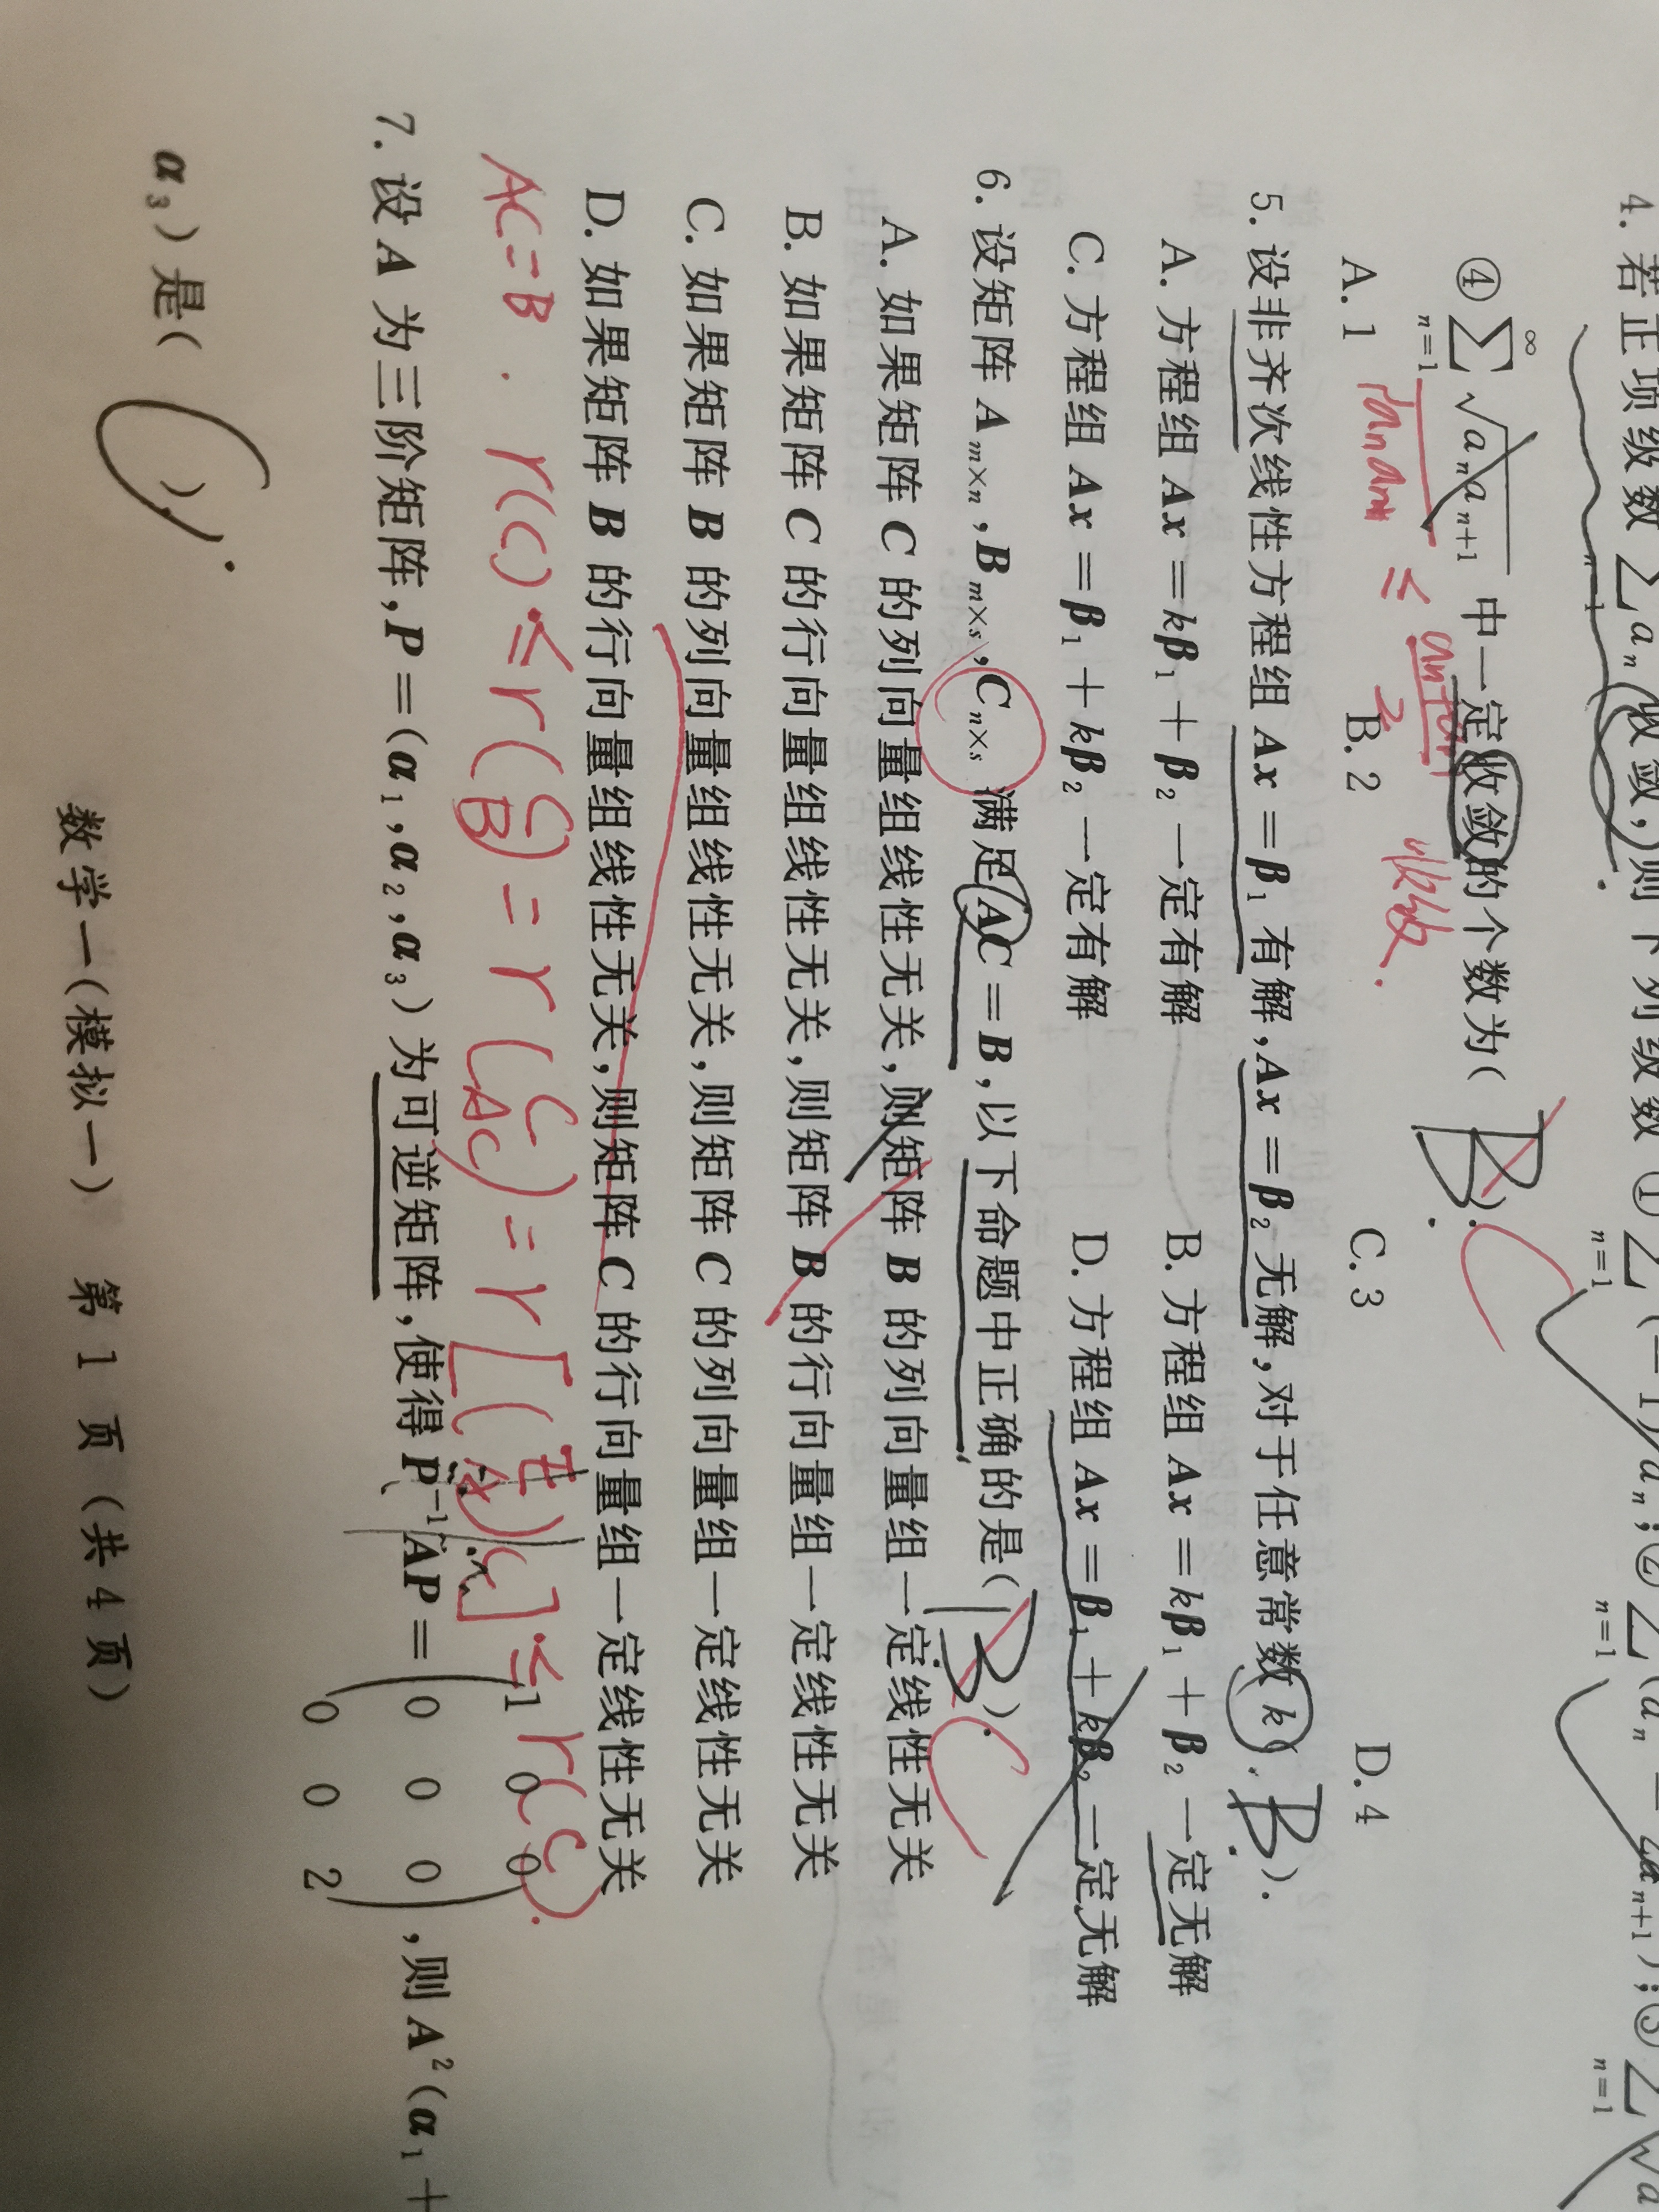 4. 若正项级数 ∑aₙ 收敛, 则下列级数 ① ∑(−1)ⁿaₙ; ② ∑(aₙ − aₙ₊₁); ③ ∑
n=1 n=1 n=1 n=1
④ ∑ₙ₌₁^∞ √(aₙaₙ₊₁) 中一定收敛的个数为( B ). C
√anan+1 ≤ an+an+1/2 收敛.
A. 1 B. 2 C. 3 D. 4
5. 设非齐次线性方程组 Ax = β₁ 有解, Ax = β₂ 无解, 对于任意常数 k( B ).
A. 方程组 Ax = kβ₁ + β₂ 一定有解 B. 方程组 Ax = kβ₁ + β₂ 一定无解
C. 方程组 Ax = β₁ + kβ₂ 一定有解 D. 方程组 Ax = β₁ + kβ₂ 一定无解
6. 设矩阵 Aₘₓₙ, Bₘₓₛ, Cₙₓₛ 满足 AC = B, 以下命题中正确的是( B ). C
A. 如果矩阵 C 的列向量组线性无关, 则矩阵 B 的列向量组一定线性无关
B. 如果矩阵 C 的行向量组线性无关, 则矩阵 B 的行向量组一定线性无关
C. 如果矩阵 B 的列向量组线性无关, 则矩阵 C 的列向量组一定线性无关
D. 如果矩阵 B 的行向量组线性无关, 则矩阵 C 的行向量组一定线性无关
AC=B. r(C) ≤ r(C B) = r(C AC) = r[(E A)C] ≤ r(C).
7. 设 A 为三阶矩阵, P = (α₁, α₂, α₃) 为可逆矩阵, 使得 P⁻¹AP = (1 0 0; 0 0 0; 0 0 2), 则 A²(α₁ +
α₃) 是( ).
数学一(模拟一) 第 1 页 (共 4 页)